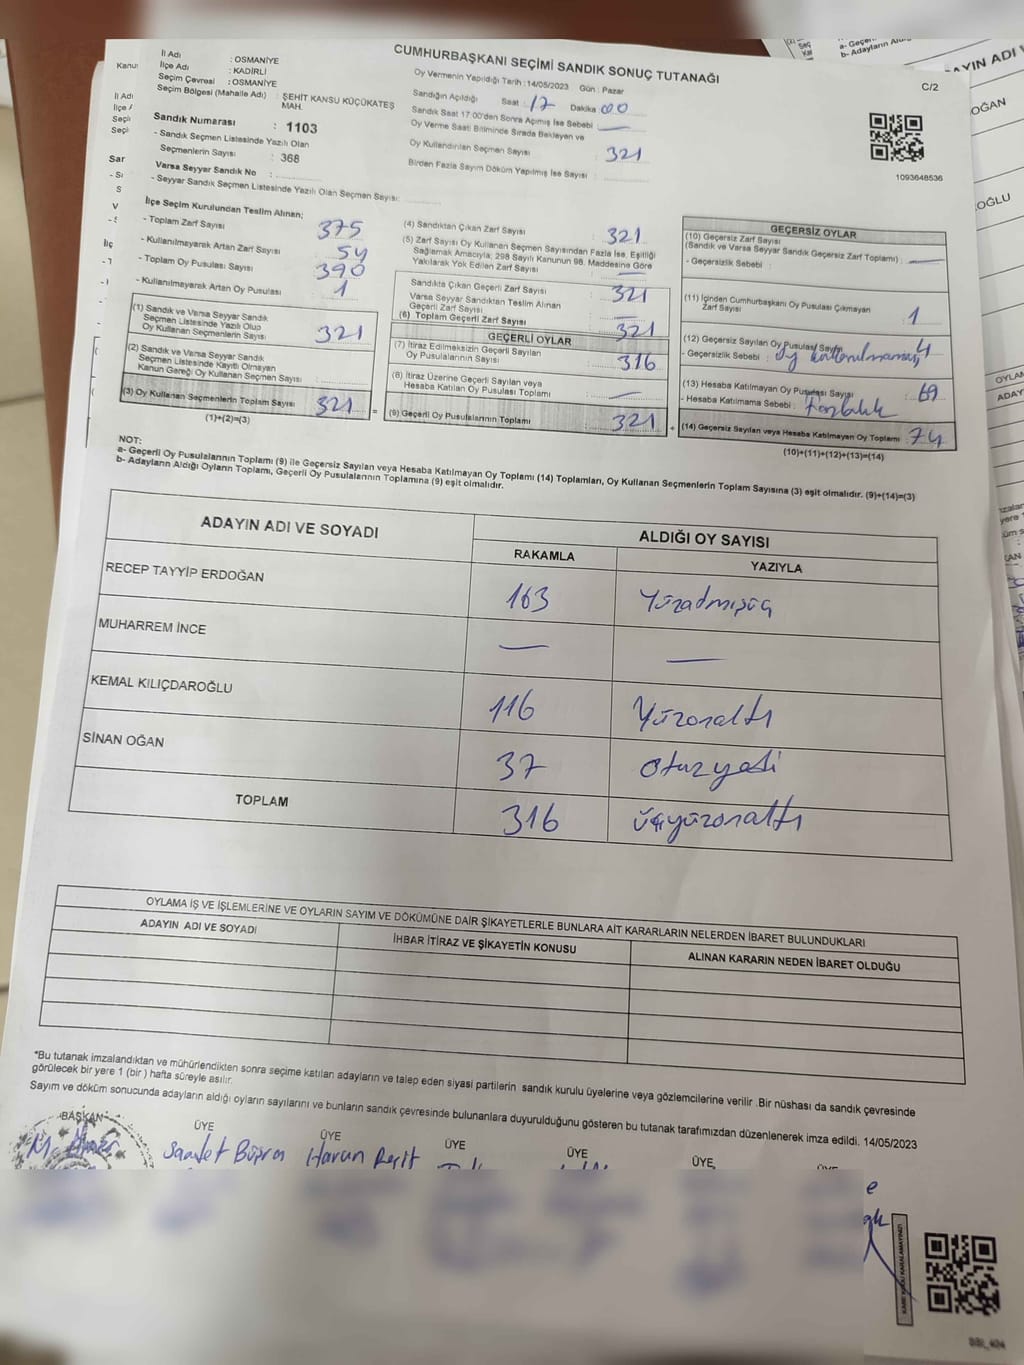 CUMHURBAŞKANI SEÇİMİ SANDIK SONUÇ TUTANAĞI
C/2
İl Adı : OSMANİYE
İlçe Adı : KADİRLİ
Seçim Çevresi : OSMANİYE
Seçim Bölgesi (Mahalle Adı) : ŞEHİT KANSU KÜÇÜKATEŞ MAH.
Sandık Numarası : 1103
- Sandık Seçmen Listesinde Yazılı Olan
Seçmenlerin Sayısı : 368
Varsa Seyyar Sandık No :
- Seyyar Sandık Seçmen Listesinde Yazılı Olan Seçmen Sayısı:
Oy Vermenin Yapıldığı Tarih : 14/05/2023 Gün : Pazar
Sandığın Açıldığı Saat 17 Dakika 00
Sandık Saat 17:00'den Sonra Açılmış İse Sebebi —
Oy Verme Saati Bitiminde Sırada Bekleyen ve
Oy Kullandırılan Seçmen Sayısı 321
Birden Fazla Sayım Döküm Yapılmış İse Sayısı :
1093648536
İlçe Seçim Kurulundan Teslim Alınan;
- Toplam Zarf Sayısı : 375
- Kullanılmayarak Artan Zarf Sayısı : 54
- Toplam Oy Pusulası Sayısı : 390
- Kullanılmayarak Artan Oy Pusulası : 1
(1) Sandık ve Varsa Seyyar Sandık
Seçmen Listesinde Yazılı Olup
Oy Kullanan Seçmenlerin Sayısı : 321
(2) Sandık ve Varsa Seyyar Sandık
Seçmen Listesinde Kayıtlı Olmayan
Kanun Gereği Oy Kullanan Seçmen Sayısı :
(3) Oy Kullanan Seçmenlerin Toplam Sayısı : 321
(1)+(2)=(3)
(4) Sandıktan Çıkan Zarf Sayısı : 321
(5) Zarf Sayısı Oy Kullanan Seçmen Sayısından Fazla İse, Eşitliği
Sağlamak Amacıyla; 298 Sayılı Kanunun 98. Maddesine Göre
Yakılarak Yok Edilen Zarf Sayısı : —
Sandıkta Çıkan Geçerli Zarf Sayısı : 321
Varsa Seyyar Sandıktan Teslim Alınan
Geçerli Zarf Sayısı : —
(6) Toplam Geçerli Zarf Sayısı : 321
GEÇERLİ OYLAR
(7) İtiraz Edilmeksizin Geçerli Sayılan
Oy Pusulalarının Sayısı : 316
(8) İtiraz Üzerine Geçerli Sayılan veya
Hesaba Katılan Oy Pusulası Toplamı : —
(9) Geçerli Oy Pusulalarının Toplamı : 321
GEÇERSİZ OYLAR
(10) Geçersiz Zarf Sayısı
(Sandık ve Varsa Seyyar Sandık Geçersiz Zarf Toplamı) : —
- Geçersizlik Sebebi :
(11) İçinden Cumhurbaşkanı Oy Pusulası Çıkmayan
Zarf Sayısı : 1
(12) Geçersiz Sayılan Oy Pusulası Sayısı : 4
- Geçersizlik Sebebi : oy kullanılmamış
(13) Hesaba Katılmayan Oy Pusulası Sayısı : 69
- Hesaba Katılmama Sebebi : fazlalık
(14) Geçersiz Sayılan veya Hesaba Katılmayan Oy Toplamı : 74
(10)+(11)+(12)+(13)=(14)
NOT:
a- Geçerli Oy Pusulalarının Toplamı (9) ile Geçersiz Sayılan veya Hesaba Katılmayan Oy Toplamı (14) Toplamları, Oy Kullanan Seçmenlerin Toplam Sayısına (3) eşit olmalıdır. (9)+(14)=(3)
b- Adayların Aldığı Oyların Toplamı, Geçerli Oy Pusulalarının Toplamına (9) eşit olmalıdır.
ADAYIN ADI VE SOYADI
ALDIĞI OY SAYISI
RAKAMLA YAZIYLA
RECEP TAYYİP ERDOĞAN 163 Yüzatmışüç
MUHARREM İNCE — —
KEMAL KILIÇDAROĞLU 116 Yüzonaltı
SİNAN OĞAN 37 otuzyedi
TOPLAM 316 üçyüzonaltı
OYLAMA İŞ VE İŞLEMLERİNE VE OYLARIN SAYIM VE DÖKÜMÜNE DAİR ŞİKAYETLERLE BUNLARA AİT KARARLARIN NELERDEN İBARET BULUNDUKLARI
ADAYIN ADI VE SOYADI İHBAR İTİRAZ VE ŞİKAYETİN KONUSU ALINAN KARARIN NEDEN İBARET OLDUĞU
*Bu tutanak imzalandıktan ve mühürlendikten sonra seçime katılan adayların ve talep eden siyasi partilerin sandık kurulu üyelerine veya gözlemcilerine verilir. Bir nüshası da sandık çevresinde
görülecek bir yere 1 (bir ) hafta süreyle asılır.
Sayım ve döküm sonucunda adayların aldığı oyların sayılarını ve bunların sandık çevresinde bulunanlara duyurulduğunu gösteren bu tutanak tarafımızdan düzenlenerek imza edildi. 14/05/2023
BAŞKAN ÜYE ÜYE ÜYE ÜYE ÜYE
Saadet Büşra Harun Reşit